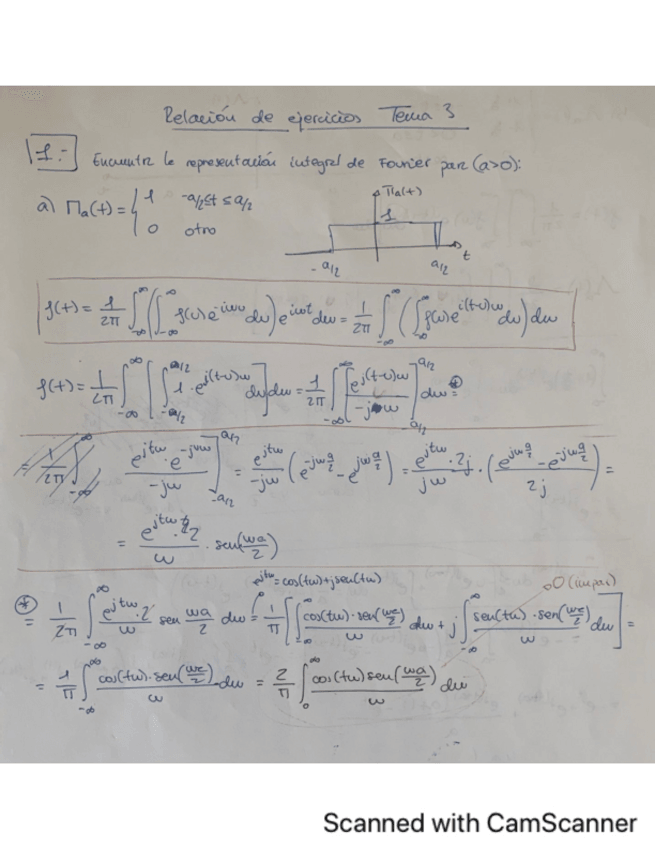 Relación de ejercicios Tema 3
1.- Encuentra la representación integral de Fourier para (a>0):
a) Πa(t) = { 1 -a/2 ≤ t ≤ a/2
0 otro
Πa(t)
1
-a/2 a/2 t
f(t) = 1/2π ∫_{-∞}^{∞} ( ∫_{-∞}^{∞} f(u) e^{-iwu} du ) e^{iwt} dw = 1/2π ∫_{-∞}^{∞} ( ∫_{-∞}^{∞} f(u) e^{i(t-u)w} du ) dw
f(t) = 1/2π ∫_{-∞}^{∞} [ ∫_{-a/2}^{a/2} 1 · e^{j(t-u)w} du ] dw = 1/2π ∫_{-∞}^{∞} [ e^{j(t-u)w} / -jw ]_{-a/2}^{a/2} dw (*)=
e^{jtw} · e^{-juw} / -jw ]_{-a/2}^{a/2} = e^{jtw} / -jw ( e^{-jw a/2} - e^{jw a/2} ) = e^{jtw} · 2j / jw · ( e^{jw a/2} - e^{-jw a/2} / 2j ) =
= e^{jtw} · 2 / w · sen(wa/2)
e^{jtw} = cos(tw) + jsen(tw)
0 (impar)
(*) = 1/2π ∫_{-∞}^{∞} e^{jtw} · 2 / w sen wa/2 dw = 1/π [ ∫_{-∞}^{∞} cos(tw) · sen(wa/2) / w dw + j ∫_{-∞}^{∞} sen(tw) · sen(wa/2) / w dw ] =
= 1/π ∫_{-∞}^{∞} cos(tw) · sen(wa/2) / w dw = 2/π ∫_{0}^{∞} cos(tw) sen(wa/2) / w dw
Scanned with CamScanner